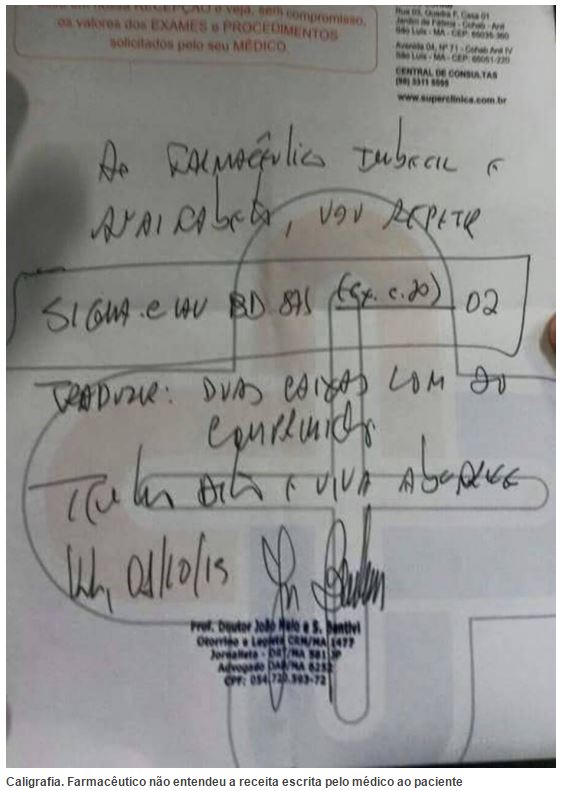 em nossa RECEPÇÃO e veja, sem compromisso,
os valores dos EXAMES e PROCEDIMENTOS
solicitados pelo seu MÉDICO.
Rua 03, Quadra F, Casa 01
Jardim de Fátima - Cohab - Anil
São Luís - MA - CEP:
Avenida 04, Nº 71 - Cohab Anil IV
São Luís - MA - CEP: 65051-220
CENTRAL DE CONSULTAS
www.superclinica.com.br
Ao FARMACÊUTICO IMBECIL E
ANALFABETO, VOU REPETIR
SIGMA-CLAV BD 875 (Cx. c. 20) 02
TRADUZIR: DUAS CAIXAS COM 20
COMPRIMIDOS
E VIVA
Prof. Doutor João Melo e S. Bentivi
Otorrino e Legista CRM/MA 1477
Jornalista - DRT/MA 581 JP
Advogado OAB/MA
CPF:
Caligrafia. Farmacêutico não entendeu a receita escrita pelo médico ao paciente